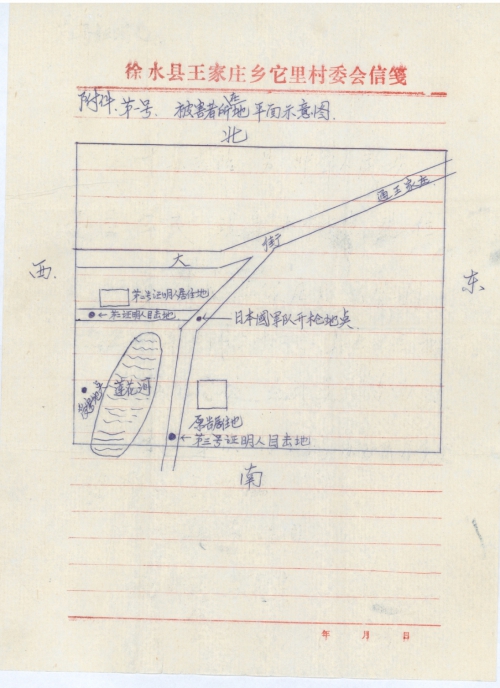 徐水县王家庄乡它里村委会信笺
附件 第 号. 被害者所在地平面示意图.
北
通王家庄
街
大
西.
东
第二号证明人居住地
←第二证明人目击地
日本国军队开枪地点.
莲花河
原告居住地
←第三号证明人目击地
南
年 月 日